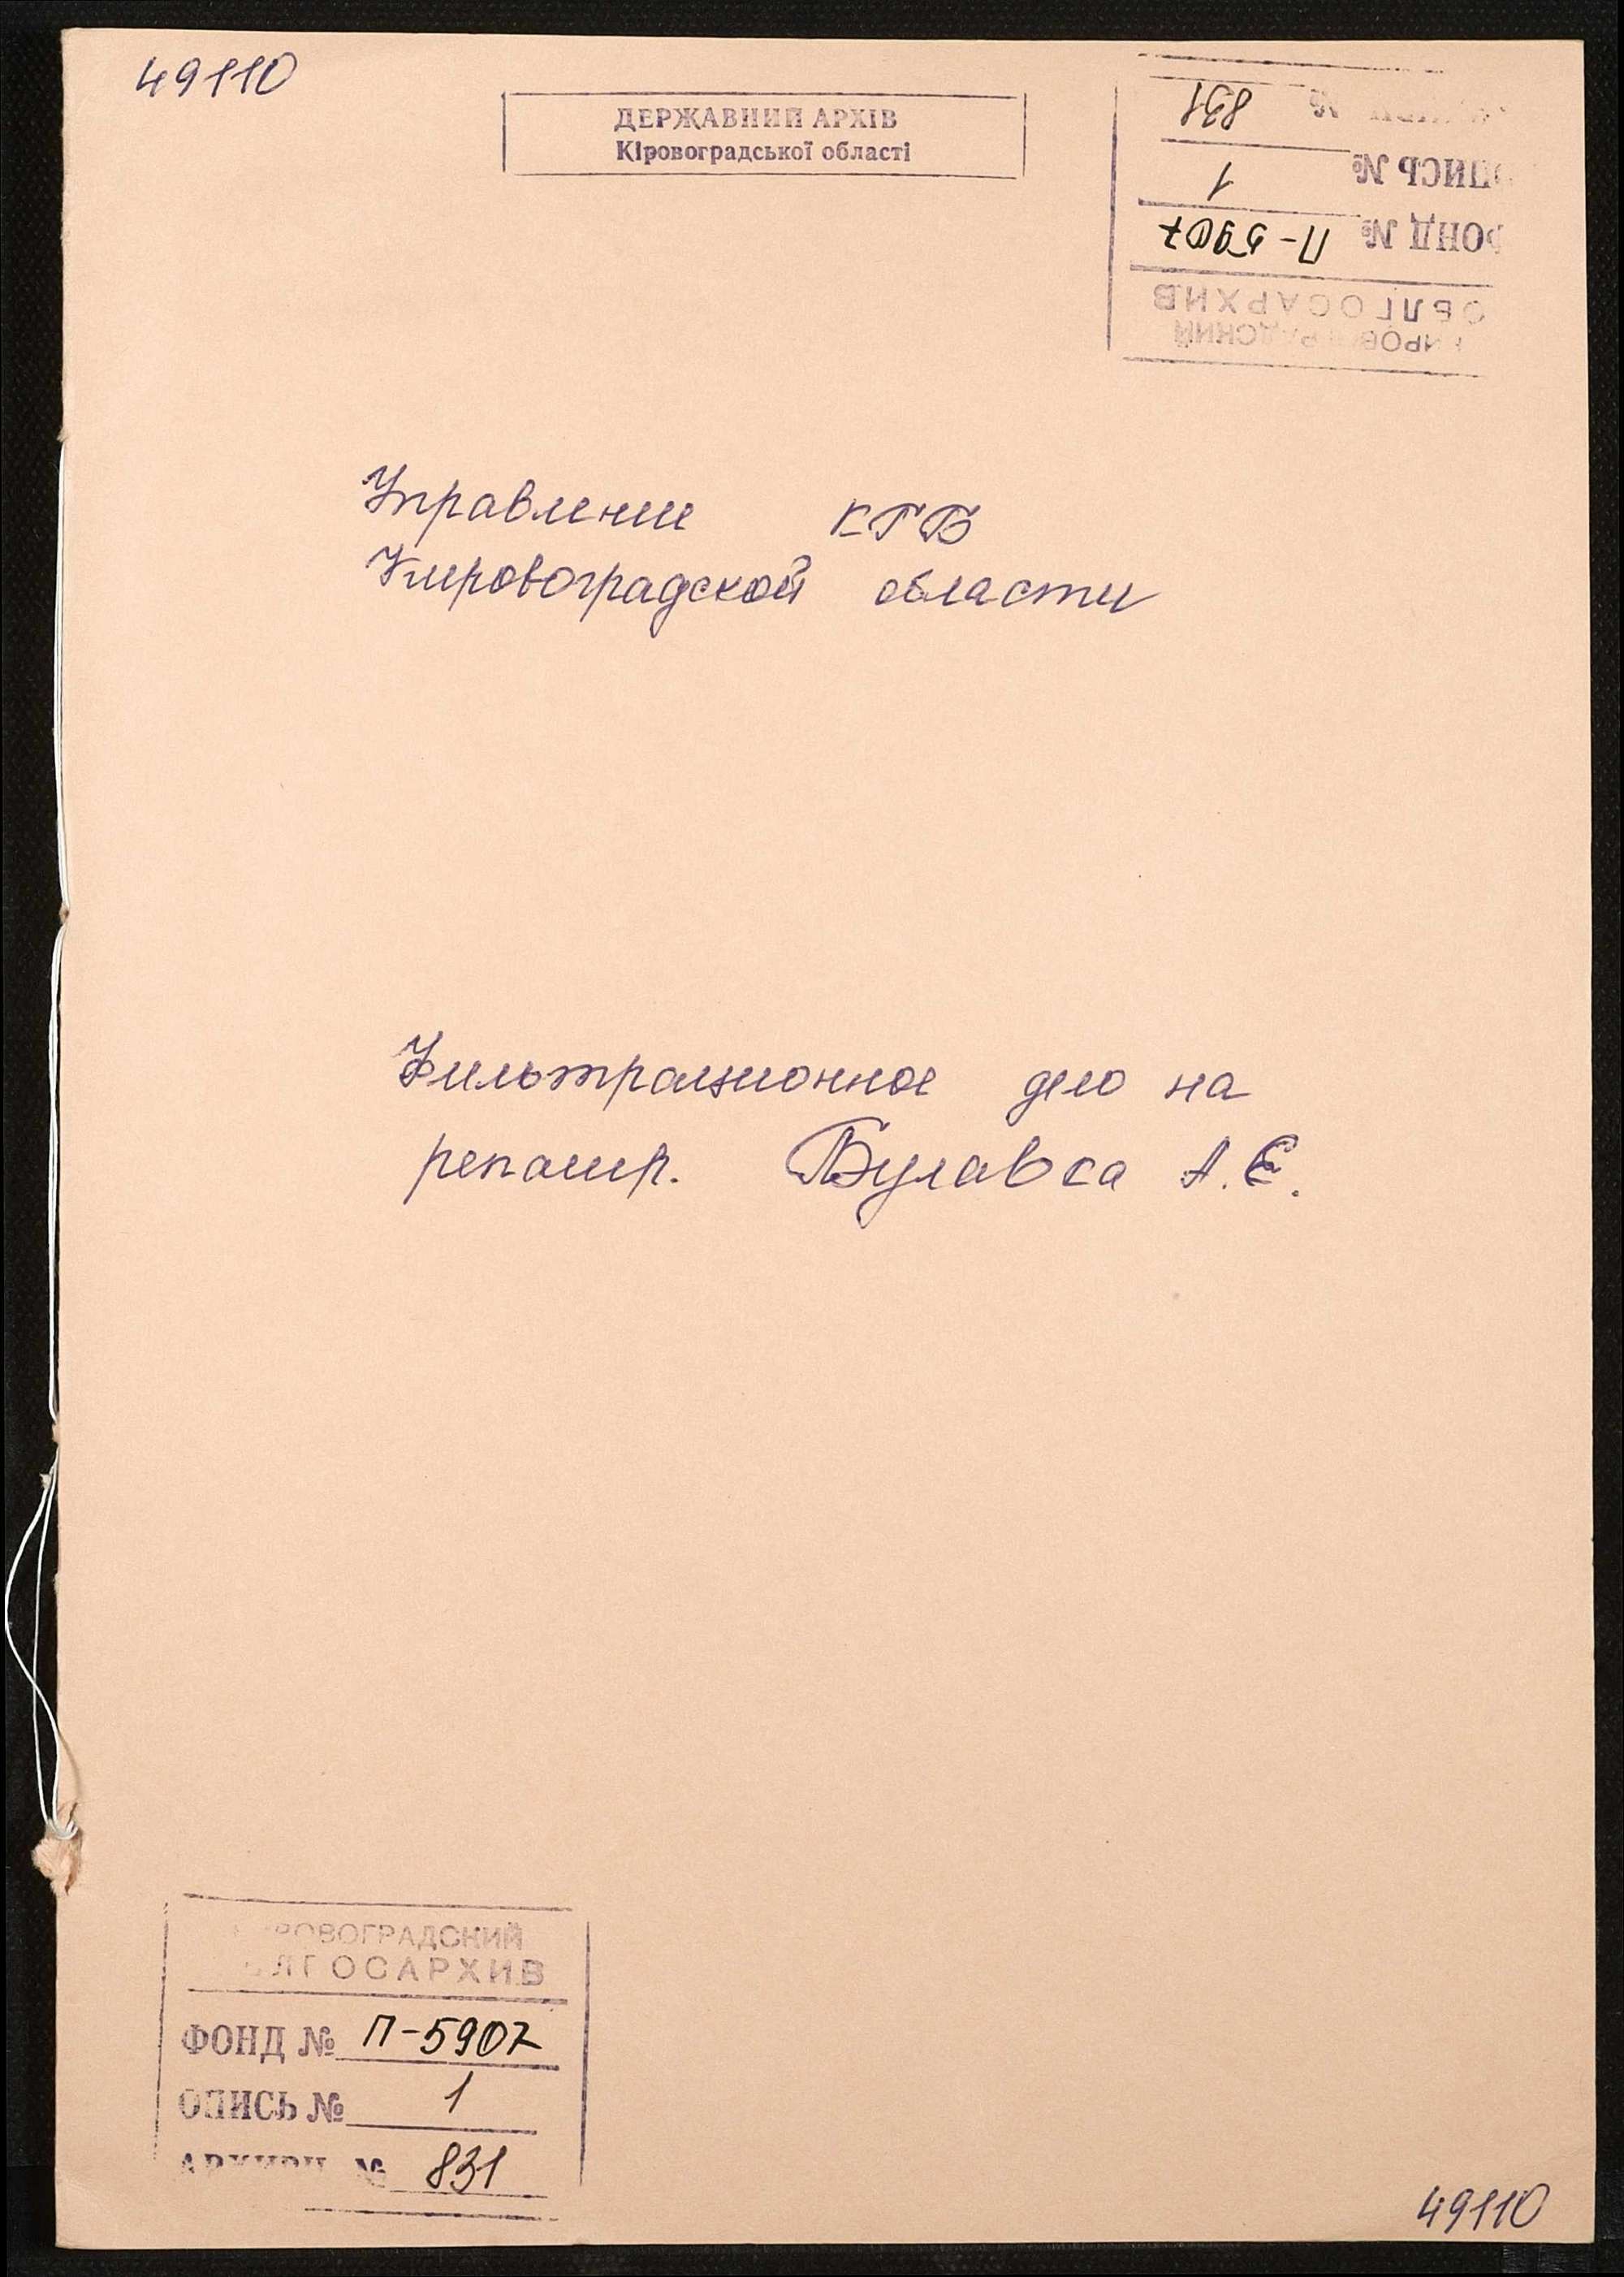 49110
ДЕРЖАВНИЙ АРХІВ
Кіровоградської області
КИРОВОГРАДСКИЙ
ОБЛГОСАРХИВ
ФОНД № П-5907
ОПИСЬ № 1
№ 831
Управление КГБ
Кировоградской области
Фильтрационное дело на
репатр. Булавса А.Е.
КИРОВОГРАДСКИЙ
ОБЛГОСАРХИВ
ФОНД № П-5907
ОПИСЬ № 1
АРХИВН № 831
49110